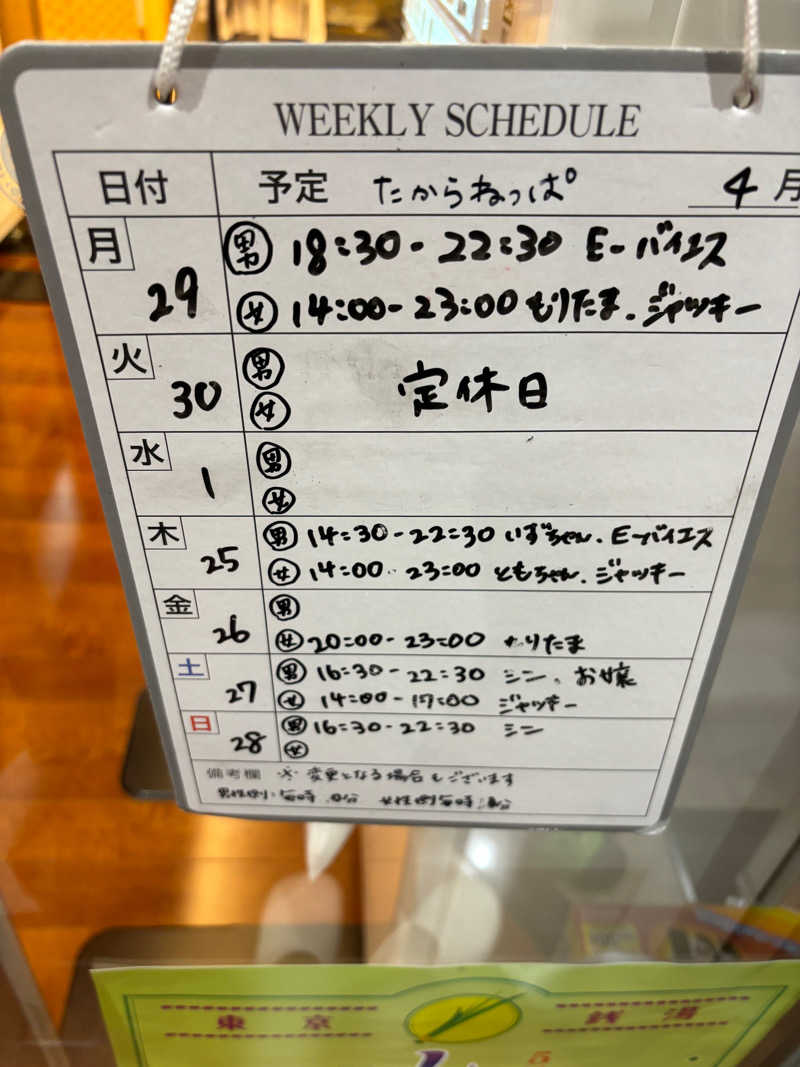 WEEKLY SCHEDULE
日付 予定 たからねっぱ° 4 月
月 29 男 18:30-22:30 E-バイエス
女 14:00-23:00 もりたま.ジャッキー
火 30 男 女 定休日
水 1 男
女
木 25 男 14:30-22:30 いずちゃん.E-バイエス
女 14:00-23:00 ともちゃん.ジャッキー
金 26 男
女 20:00-23:00 もりたま
土 27 男 16:30-22:30 シン、お嬢
女 14:00-17:00 ジャッキー
日 28 男 16:30-22:30 シン
女
備考欄 ※変更となる場合もございます
男性側:毎時 0分 女性側毎時
東京 銭湯
5